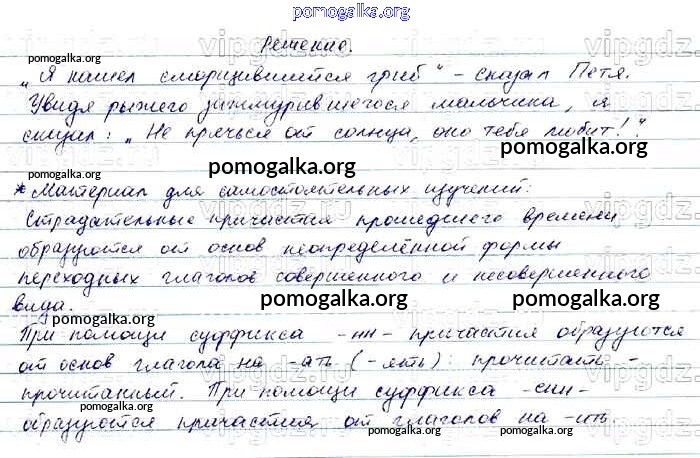 pomogalka.org
Решение.
„Я нашел сморщившийся гриб“ – сказал Петя.
Увидя рыжего зажмурившегося мальчика, я
сказал: „Не прячься от солнца, оно тебя любит!“
pomogalka.org
pomogalka.org
* Материал для самостоятельных изучений:
Страдательные причастия прошедшего времени
образуются от основ неопределённой формы
переходных глаголов совершенного и несовершенного
вида.
pomogalka.org
pomogalka.org
pomogalka.org
При помощи суффикса -нн- причастия образуются
от основ глагола на -ать (-ять): прочитать -
прочитанный. При помощи суффикса -енн-
pomogalka.org
образуются причастия от глаголов на -ить.
pomogalka.org
pomogalka.org